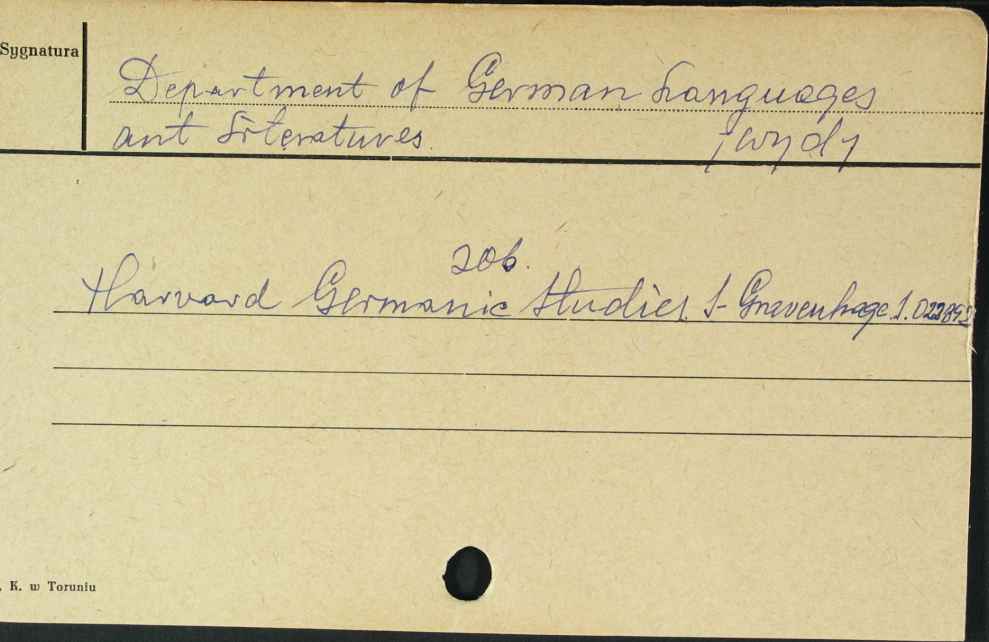 Sygnatura
Department of German Languages
ant Literatures. ; wydz
zob.
Harvard Germanic Studies. S-Gravenhage S.022892
. K. w Toruniu